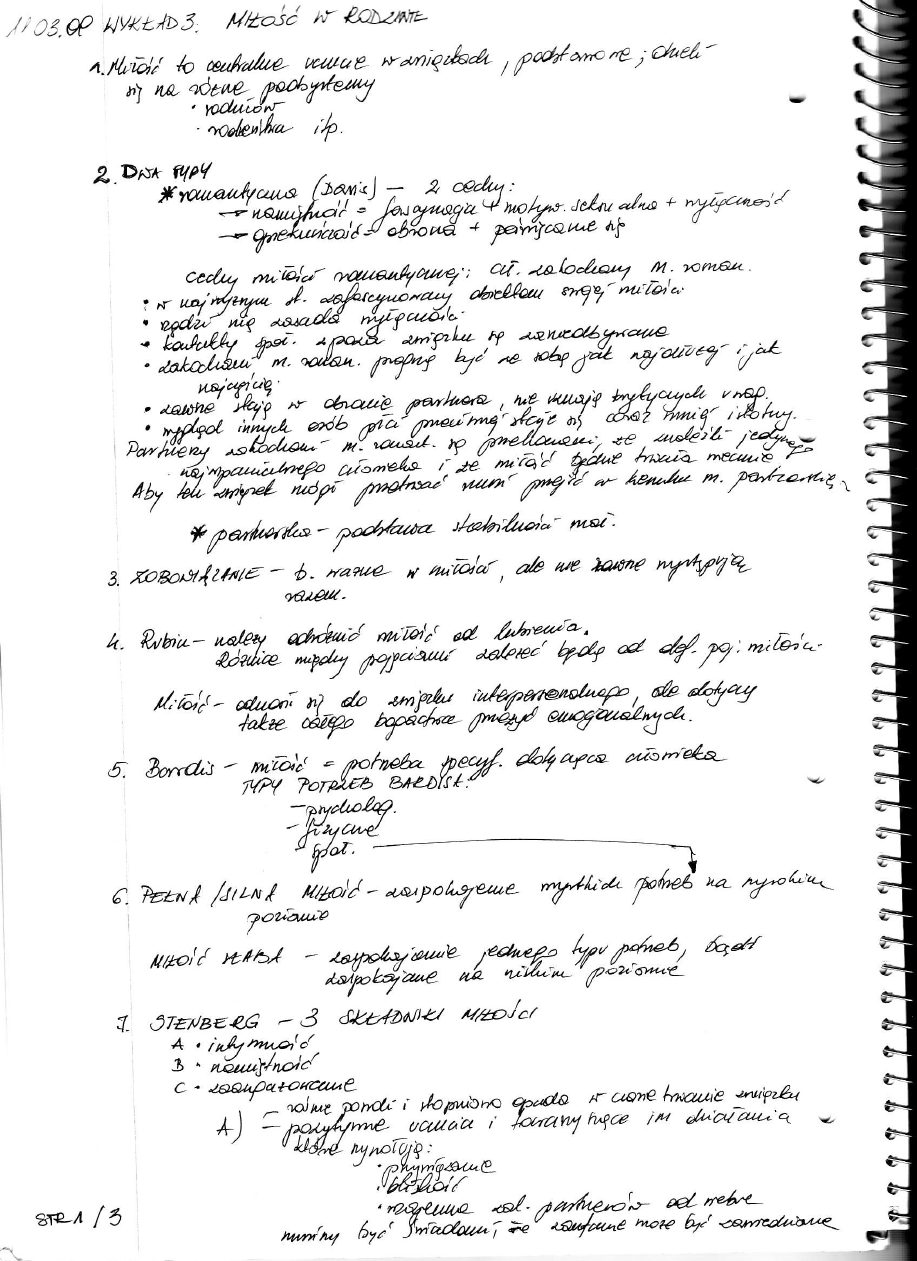 11.03.08 WYKŁAD 3: MIŁOŚĆ W RODZINIE
1. Miłość to centralne uczucie w związkach, podstawowe; dzieli
się na różne podsystemy
• rodziców
• rodzeństwa itp.
2. DWA TYPY
* romantyczna (Davis) — 2 cechy:
→ namiętność = fascynacja + motyw. seksualna + wyłączność
→ opiekuńczość = obrona + poświęcanie się
Cechy miłości romantycznej: Cł. zakochany m. roman.
• w najwyższym st. zafascynowany obiektem swojej miłości
• rządzi nią zasada wyłączności
• kontakty społ. spoza związku są zaniedbywane
• zakochani m. roman. pragną być ze sobą jak najdłużej i jak
najczęściej
• zawsze stają w obronie partnera, nie uznają krytycznych uwag.
• wygląd innych osób płci przeciwnej staje się coraz mniej istotny.
Partnerzy zakochani m. romant. są przekonani, że znaleźli jedynego
najwspanialszego człowieka i że miłość będzie trwała wiecznie
Aby ten związek mógł przetrwać musi przejść w kierunku m. partnerskiej
* partnerska – podstawa stabilności małż.
3. ZOBOWIĄZANIE – b. ważne w miłości, ale nie zawsze występują
razem.
4. Rubin – należy odróżnić miłość od lubienia.
Różnice między pojęciami zależeć będą od def. poj. miłości
Miłość – odnosi się do związku interpersonalnego, ale dotyczy
także całego bogactwa przeżyć emocjonalnych.
5. Barrdis – miłość = potrzeba specyf. dotycząca człowieka
TYPY POTRZEB BARDISA:
– psycholog.
– fizyczne
– społ.
6. PEŁNA /SILNA MIŁOŚĆ – zaspokojenie wszystkich potrzeb na wysokim
poziomie
MIŁOŚĆ SŁABA – zaspokajanie jednego typu potrzeb, bądź
zaspokajane na niskim poziomie
7. STENBERG – 3 SKŁADNIKI MIŁOŚCI
A • intymność
B • namiętność
C • zaangażowanie
A) – rośnie powoli i stopniowo opada w czasie trwania związku
– pozytywne uczucia i towarzyszące im działania
które wywołują:
• przywiązanie
• bliskość
• wzajemna zal. partnerów od siebie
musimy być świadomi, że zaufanie może być zawiedzione
STR 1/3